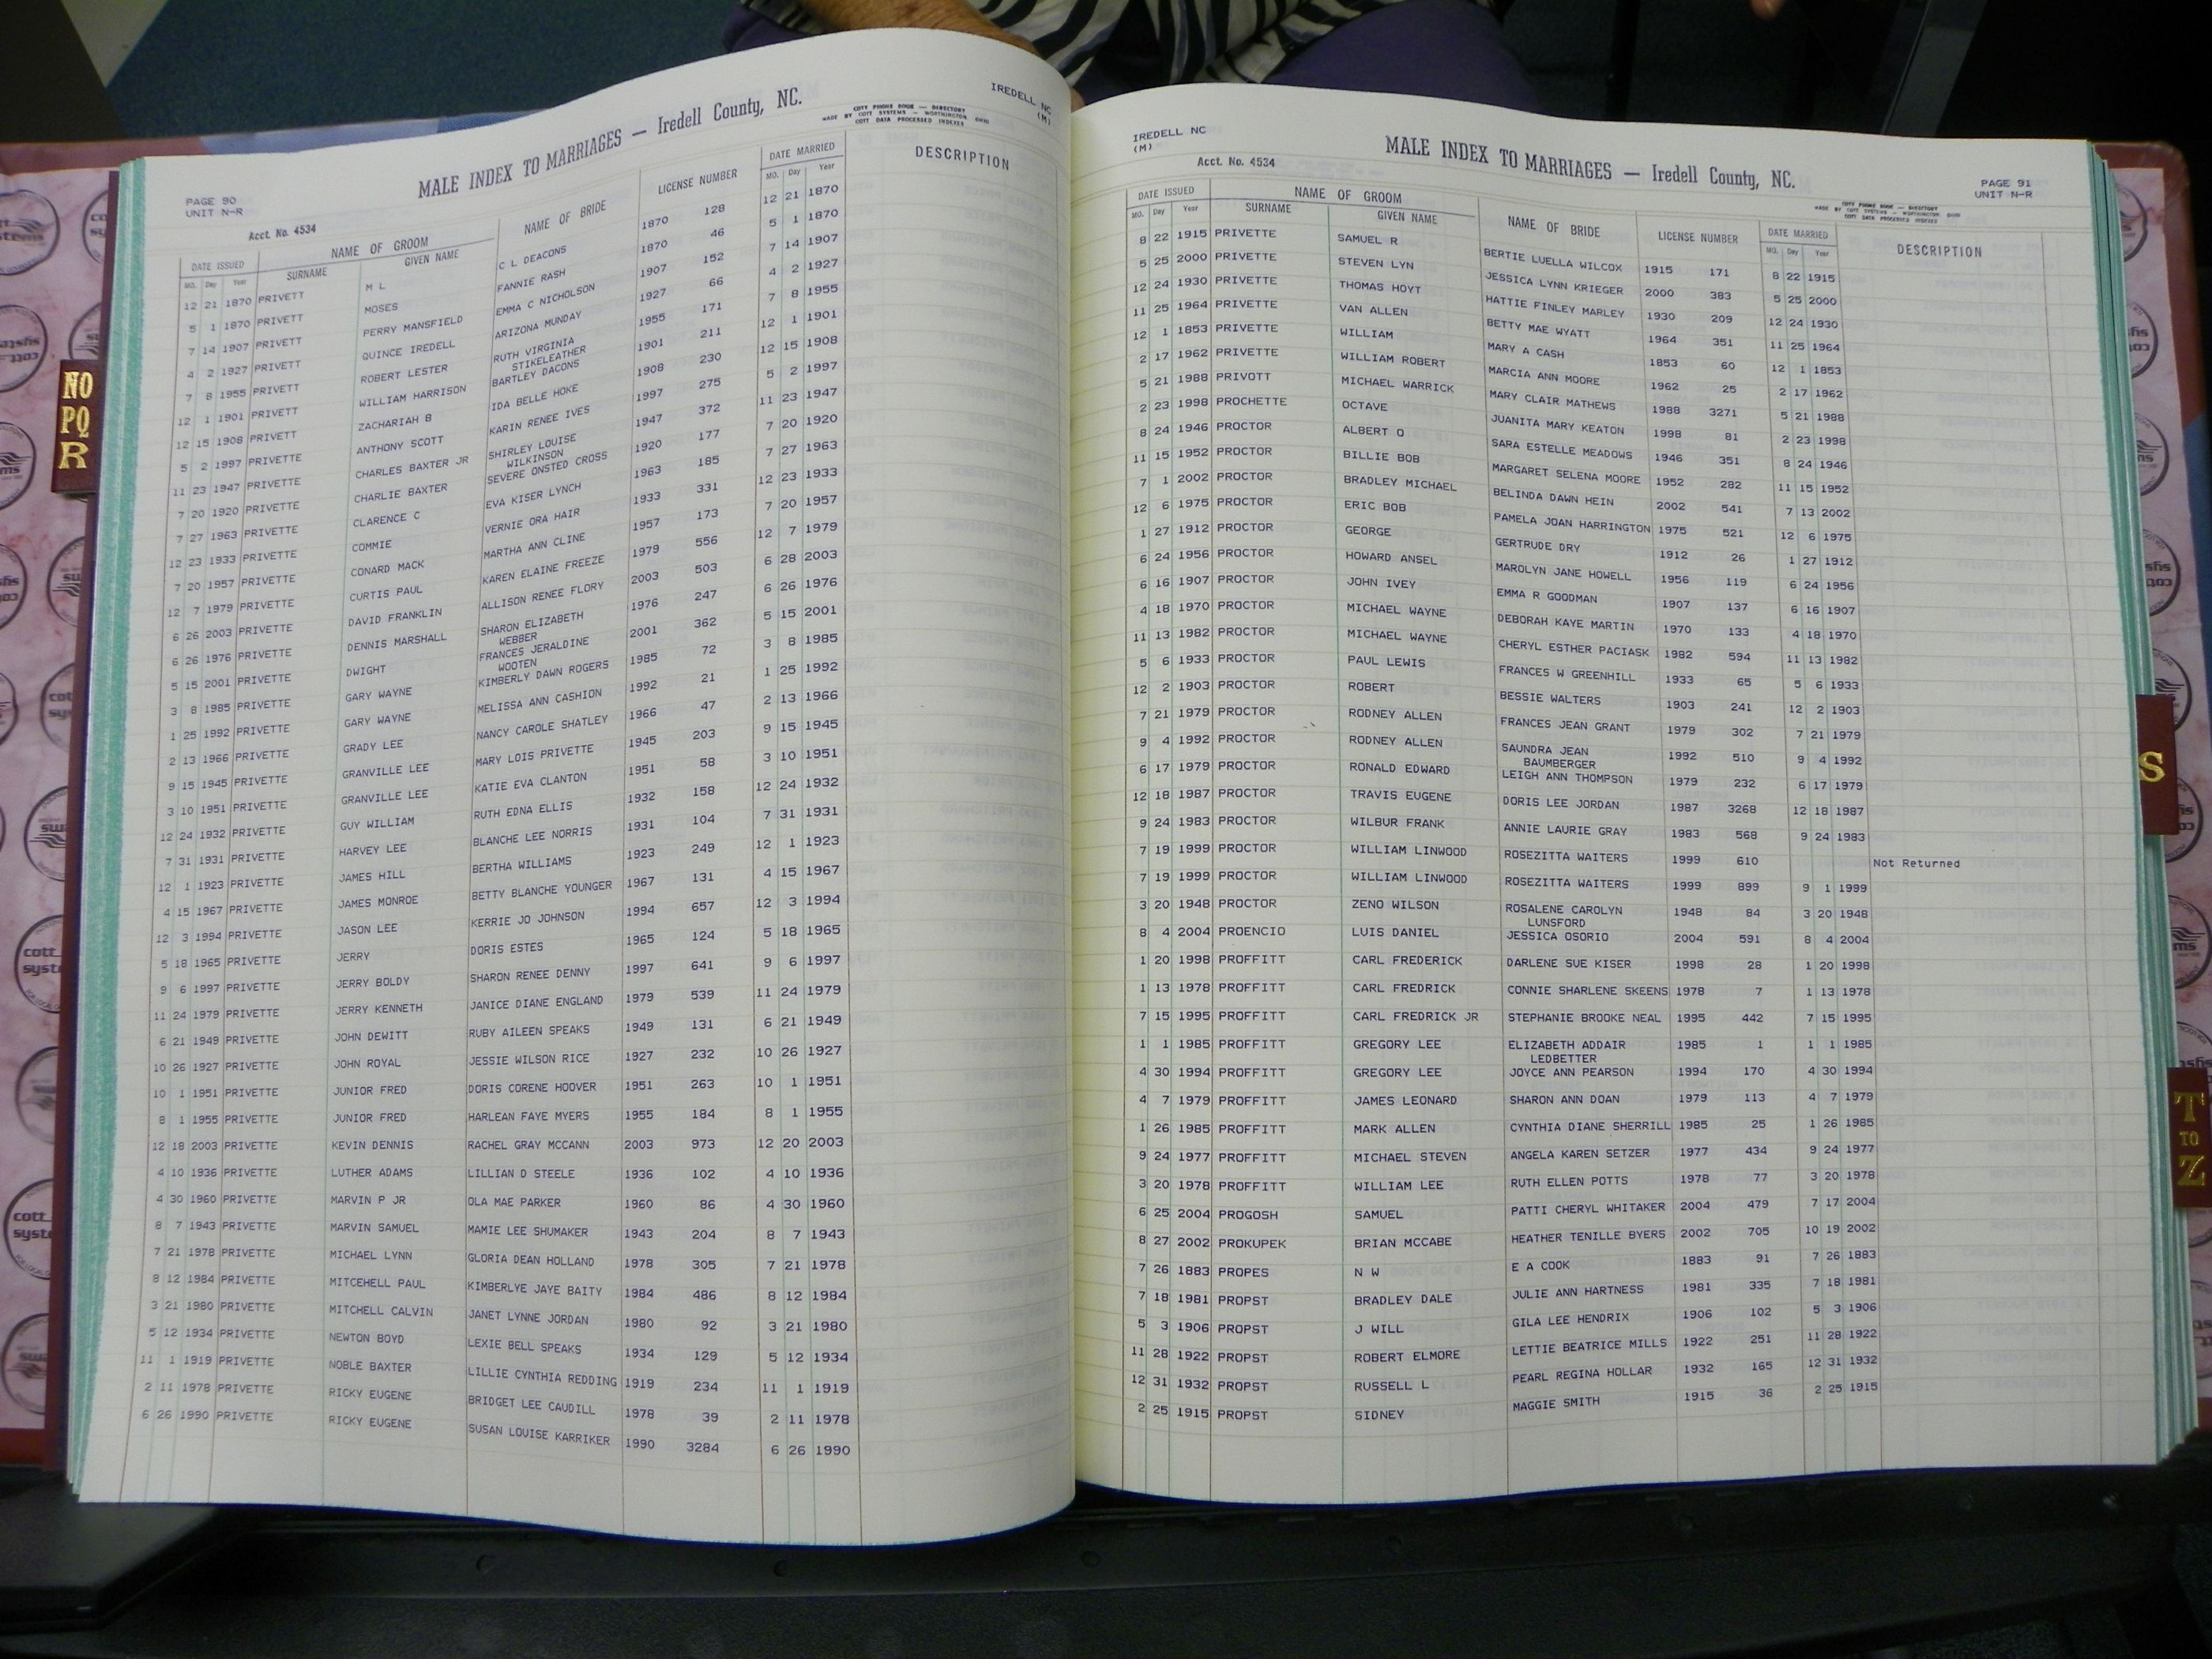 IREDELL NC
(M)
MALE INDEX TO MARRIAGES — Iredell County, NC.
COTT PHONE BOOK — DIRECTORY
MADE BY COTT SYSTEMS — WORTHINGTON, OHIO
COTT DATA PROCESSED INDEXES
PAGE 90
UNIT N-R
Acct. No. 4534
DATE ISSUED NAME OF GROOM NAME OF BRIDE LICENSE NUMBER DATE MARRIED DESCRIPTION
MO. Day Year SURNAME GIVEN NAME MO. Day Year
12 21 1870 PRIVETT M L C L DEACONS 1870 128 12 21 1870
5 1 1870 PRIVETT MOSES FANNIE RASH 1870 46 5 1 1870
7 14 1907 PRIVETT PERRY MANSFIELD EMMA C NICHOLSON 1907 152 7 14 1907
4 2 1927 PRIVETT QUINCE IREDELL ARIZONA MUNDAY 1927 66 4 2 1927
7 8 1955 PRIVETT ROBERT LESTER RUTH VIRGINIA 1955 171 7 8 1955
STIKELEATHER
12 1 1901 PRIVETT WILLIAM HARRISON BARTLEY DACONS 1901 211 12 1 1901
12 15 1908 PRIVETT ZACHARIAH B IDA BELLE HOKE 1908 230 12 15 1908
5 2 1997 PRIVETTE ANTHONY SCOTT KARIN RENEE IVES 1997 275 5 2 1997
11 23 1947 PRIVETTE CHARLES BAXTER JR SHIRLEY LOUISE 1947 372 11 23 1947
WILKINSON
7 20 1920 PRIVETTE CHARLIE BAXTER SEVERE ONSTED CROSS 1920 177 7 20 1920
7 27 1963 PRIVETTE CLARENCE C EVA KISER LYNCH 1963 185 7 27 1963
12 23 1933 PRIVETTE COMMIE VERNIE ORA HAIR 1933 331 12 23 1933
7 20 1957 PRIVETTE CONARD MACK MARTHA ANN CLINE 1957 173 7 20 1957
12 7 1979 PRIVETTE CURTIS PAUL KAREN ELAINE FREEZE 1979 556 12 7 1979
6 26 2003 PRIVETTE DAVID FRANKLIN ALLISON RENEE FLORY 2003 503 6 28 2003
6 26 1976 PRIVETTE DENNIS MARSHALL SHARON ELIZABETH 1976 247 6 26 1976
WEBBER
5 15 2001 PRIVETTE DWIGHT FRANCES JERALDINE 2001 362 5 15 2001
WOOTEN
3 8 1985 PRIVETTE GARY WAYNE KIMBERLY DAWN ROGERS 1985 72 3 8 1985
1 25 1992 PRIVETTE GARY WAYNE MELISSA ANN CASHION 1992 21 1 25 1992
2 13 1966 PRIVETTE GRADY LEE NANCY CAROLE SHATLEY 1966 47 2 13 1966
9 15 1945 PRIVETTE GRANVILLE LEE MARY LOIS PRIVETTE 1945 203 9 15 1945
3 10 1951 PRIVETTE GRANVILLE LEE KATIE EVA CLANTON 1951 58 3 10 1951
12 24 1932 PRIVETTE GUY WILLIAM RUTH EDNA ELLIS 1932 158 12 24 1932
7 31 1931 PRIVETTE HARVEY LEE BLANCHE LEE NORRIS 1931 104 7 31 1931
12 1 1923 PRIVETTE JAMES HILL BERTHA WILLIAMS 1923 249 12 1 1923
4 15 1967 PRIVETTE JAMES MONROE BETTY BLANCHE YOUNGER 1967 131 4 15 1967
12 3 1994 PRIVETTE JASON LEE KERRIE JO JOHNSON 1994 657 12 3 1994
5 18 1965 PRIVETTE JERRY DORIS ESTES 1965 124 5 18 1965
9 6 1997 PRIVETTE JERRY BOLDY SHARON RENEE DENNY 1997 641 9 6 1997
11 24 1979 PRIVETTE JERRY KENNETH JANICE DIANE ENGLAND 1979 539 11 24 1979
6 21 1949 PRIVETTE JOHN DEWITT RUBY AILEEN SPEAKS 1949 131 6 21 1949
10 26 1927 PRIVETTE JOHN ROYAL JESSIE WILSON RICE 1927 232 10 26 1927
10 1 1951 PRIVETTE JUNIOR FRED DORIS CORENE HOOVER 1951 263 10 1 1951
8 1 1955 PRIVETTE JUNIOR FRED HARLEAN FAYE MYERS 1955 184 8 1 1955
12 18 2003 PRIVETTE KEVIN DENNIS RACHEL GRAY MCCANN 2003 973 12 20 2003
4 10 1936 PRIVETTE LUTHER ADAMS LILLIAN D STEELE 1936 102 4 10 1936
4 30 1960 PRIVETTE MARVIN P JR OLA MAE PARKER 1960 86 4 30 1960
8 7 1943 PRIVETTE MARVIN SAMUEL MAMIE LEE SHUMAKER 1943 204 8 7 1943
7 21 1978 PRIVETTE MICHAEL LYNN GLORIA DEAN HOLLAND 1978 305 7 21 1978
8 12 1984 PRIVETTE MITCEHELL PAUL KIMBERLYE JAYE BAITY 1984 486 8 12 1984
3 21 1980 PRIVETTE MITCHELL CALVIN JANET LYNNE JORDAN 1980 92 3 21 1980
5 12 1934 PRIVETTE NEWTON BOYD LEXIE BELL SPEAKS 1934 129 5 12 1934
11 1 1919 PRIVETTE NOBLE BAXTER LILLIE CYNTHIA REDDING 1919 234 11 1 1919
2 11 1978 PRIVETTE RICKY EUGENE BRIDGET LEE CAUDILL 1978 39 2 11 1978
6 26 1990 PRIVETTE RICKY EUGENE SUSAN LOUISE KARRIKER 1990 3284 6 26 1990
IREDELL NC
(M)
MALE INDEX TO MARRIAGES — Iredell County, NC.
Acct. No. 4534
PAGE 91
UNIT N-R
COTT PHONE BOOK — DIRECTORY
MADE BY COTT SYSTEMS — WORTHINGTON, OHIO
COTT DATA PROCESSED INDEXES
DATE ISSUED NAME OF GROOM NAME OF BRIDE LICENSE NUMBER DATE MARRIED DESCRIPTION
MO. Day Year SURNAME GIVEN NAME MO. Day Year
8 22 1915 PRIVETTE SAMUEL R BERTIE LUELLA WILCOX 1915 171 8 22 1915
5 25 2000 PRIVETTE STEVEN LYN JESSICA LYNN KRIEGER 2000 383 5 25 2000
12 24 1930 PRIVETTE THOMAS HOYT HATTIE FINLEY MARLEY 1930 209 12 24 1930
11 25 1964 PRIVETTE VAN ALLEN BETTY MAE WYATT 1964 351 11 25 1964
12 1 1853 PRIVETTE WILLIAM MARY A CASH 1853 60 12 1 1853
2 17 1962 PRIVETTE WILLIAM ROBERT MARCIA ANN MOORE 1962 25 2 17 1962
5 21 1988 PRIVOTT MICHAEL WARRICK MARY CLAIR MATHEWS 1988 3271 5 21 1988
2 23 1998 PROCHETTE OCTAVE JUANITA MARY KEATON 1998 81 2 23 1998
8 24 1946 PROCTOR ALBERT O SARA ESTELLE MEADOWS 1946 351 8 24 1946
11 15 1952 PROCTOR BILLIE BOB MARGARET SELENA MOORE 1952 282 11 15 1952
7 1 2002 PROCTOR BRADLEY MICHAEL BELINDA DAWN HEIN 2002 541 7 13 2002
12 6 1975 PROCTOR ERIC BOB PAMELA JOAN HARRINGTON 1975 521 12 6 1975
1 27 1912 PROCTOR GEORGE GERTRUDE DRY 1912 26 1 27 1912
6 24 1956 PROCTOR HOWARD ANSEL MAROLYN JANE HOWELL 1956 119 6 24 1956
6 16 1907 PROCTOR JOHN IVEY EMMA R GOODMAN 1907 137 6 16 1907
4 18 1970 PROCTOR MICHAEL WAYNE DEBORAH KAYE MARTIN 1970 133 4 18 1970
11 13 1982 PROCTOR MICHAEL WAYNE CHERYL ESTHER PACIASK 1982 594 11 13 1982
5 6 1933 PROCTOR PAUL LEWIS FRANCES W GREENHILL 1933 65 5 6 1933
12 2 1903 PROCTOR ROBERT BESSIE WALTERS 1903 241 12 2 1903
7 21 1979 PROCTOR RODNEY ALLEN FRANCES JEAN GRANT 1979 302 7 21 1979
9 4 1992 PROCTOR RODNEY ALLEN SAUNDRA JEAN 1992 510 9 4 1992
BAUMBERGER
6 17 1979 PROCTOR RONALD EDWARD LEIGH ANN THOMPSON 1979 232 6 17 1979
12 18 1987 PROCTOR TRAVIS EUGENE DORIS LEE JORDAN 1987 3268 12 18 1987
9 24 1983 PROCTOR WILBUR FRANK ANNIE LAURIE GRAY 1983 568 9 24 1983
7 19 1999 PROCTOR WILLIAM LINWOOD ROSEZITTA WAITERS 1999 610 Not Returned
7 19 1999 PROCTOR WILLIAM LINWOOD ROSEZITTA WAITERS 1999 899 9 1 1999
3 20 1948 PROCTOR ZENO WILSON ROSALENE CAROLYN 1948 84 3 20 1948
LUNSFORD
8 4 2004 PROENCIO LUIS DANIEL JESSICA OSORIO 2004 591 8 4 2004
1 20 1998 PROFFITT CARL FREDERICK DARLENE SUE KISER 1998 28 1 20 1998
1 13 1978 PROFFITT CARL FREDRICK CONNIE SHARLENE SKEENS 1978 7 1 13 1978
7 15 1995 PROFFITT CARL FREDRICK JR STEPHANIE BROOKE NEAL 1995 442 7 15 1995
1 1 1985 PROFFITT GREGORY LEE ELIZABETH ADDAIR 1985 1 1 1 1985
LEDBETTER
4 30 1994 PROFFITT GREGORY LEE JOYCE ANN PEARSON 1994 170 4 30 1994
4 7 1979 PROFFITT JAMES LEONARD SHARON ANN DOAN 1979 113 4 7 1979
1 26 1985 PROFFITT MARK ALLEN CYNTHIA DIANE SHERRILL 1985 25 1 26 1985
9 24 1977 PROFFITT MICHAEL STEVEN ANGELA KAREN SETZER 1977 434 9 24 1977
3 20 1978 PROFFITT WILLIAM LEE RUTH ELLEN POTTS 1978 77 3 20 1978
6 25 2004 PROGOSH SAMUEL PATTI CHERYL WHITAKER 2004 479 7 17 2004
8 27 2002 PROKUPEK BRIAN MCCABE HEATHER TENILLE BYERS 2002 705 10 19 2002
7 26 1883 PROPES N W E A COOK 1883 91 7 26 1883
7 18 1981 PROPST BRADLEY DALE JULIE ANN HARTNESS 1981 335 7 18 1981
5 3 1906 PROPST J WILL GILA LEE HENDRIX 1906 102 5 3 1906
11 28 1922 PROPST ROBERT ELMORE LETTIE BEATRICE MILLS 1922 251 11 28 1922
12 31 1932 PROPST RUSSELL L PEARL REGINA HOLLAR 1932 165 12 31 1932
2 25 1915 PROPST SIDNEY MAGGIE SMITH 1915 36 2 25 1915
NO
PQ
R
S
T
TO
Z
cott
systems